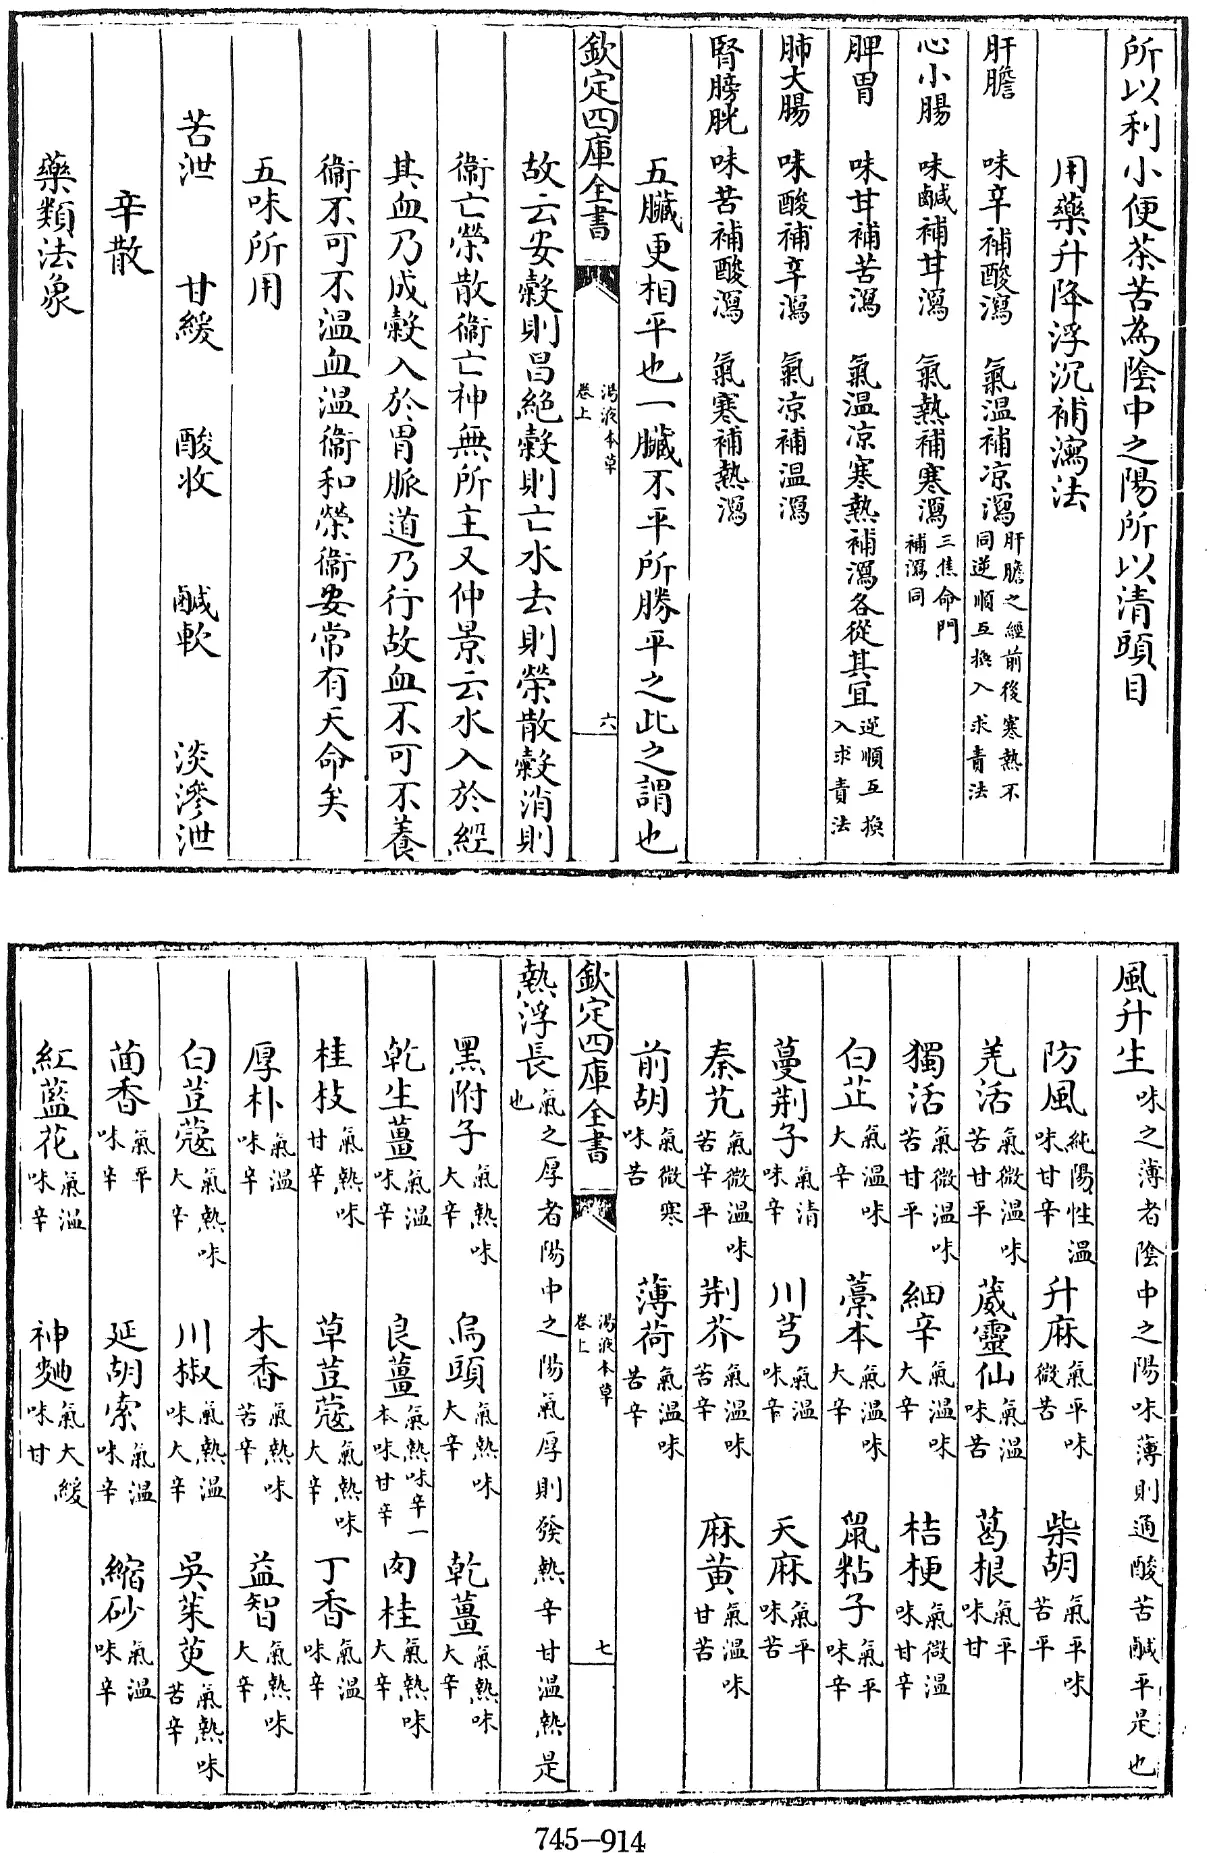 所以利小便茶苦為陰中之陽所以清頭目
用藥升降浮沉補瀉法
肝膽　味辛補酸瀉　氣溫補凉瀉肝膽之經前後寒熱不同逆順互換入求責法
心小腸　味鹹補甘瀉　氣熱補寒瀉三焦命門補瀉同
脾胃　味甘補苦瀉　氣溫凉寒熱補瀉各從其宜逆順互換入求責法
肺大腸　味酸補辛瀉　氣凉補溫瀉
腎膀胱　味苦補酸瀉　氣寒補熱瀉
五臟更相平也一臟不平所勝平之此之謂也
欽定四庫全書　湯液本草卷上　六
故云安穀則昌絕穀則亡水去則榮散穀消則
衞亡榮散衞亡神無所主又仲景云水入於經
其血乃成穀入於胃脈道乃行故血不可不養
衞不可不溫血溫衞和榮衞安常有天命矣
五味所用
苦泄　甘緩　酸收　鹹軟　淡滲泄
辛散
藥類法象
風升生味之薄者陰中之陽味薄則通酸苦鹹平是也
防風純陽性溫味甘辛　升麻氣平味微苦　柴胡氣平味苦平
羌活氣微溫味苦甘平　葳靈仙氣溫味苦　葛根氣平味甘
獨活氣微溫味苦甘平　細辛氣溫味大辛　桔梗氣微溫味甘辛
白芷氣溫味大辛　藁本氣溫味大辛　鼠粘子氣平味辛
蔓荆子氣清味辛　川芎氣溫味辛　天麻氣平味苦
秦艽氣微溫味苦辛平　荆芥氣溫味苦辛　麻黄氣溫味甘苦
前胡氣微寒味苦　薄荷氣溫味苦辛
欽定四庫全書　湯液本草卷上　七
熱浮長氣之厚者陽中之陽氣厚則發熱辛甘溫熱是也
黑附子氣熱味大辛　烏頭氣熱味大辛　乾薑氣熱味大辛
乾生薑氣溫味辛　良薑氣熱味辛一本味甘辛　肉桂氣熱味大辛
桂枝氣熱味甘辛　草荳蔻氣熱味大辛　丁香氣溫味辛
厚朴氣溫味辛　木香氣熱味苦辛　益智氣熱味大辛
白荳蔻氣熱味大辛　川椒氣熱溫味大辛　吳茱萸氣熱味苦辛
茴香氣平味辛　延胡索氣溫味辛　縮砂氣溫味辛
紅藍花氣溫味辛　神麯氣大緩味甘
745-914